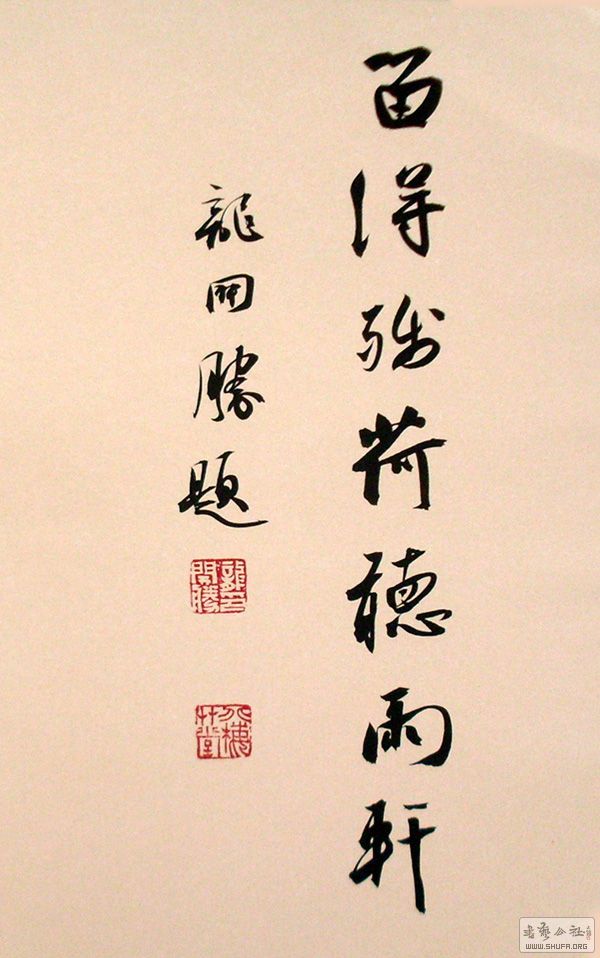 留得残荷聽雨軒
龍開勝題
龍開勝印
WWW.SHUFA.ORG